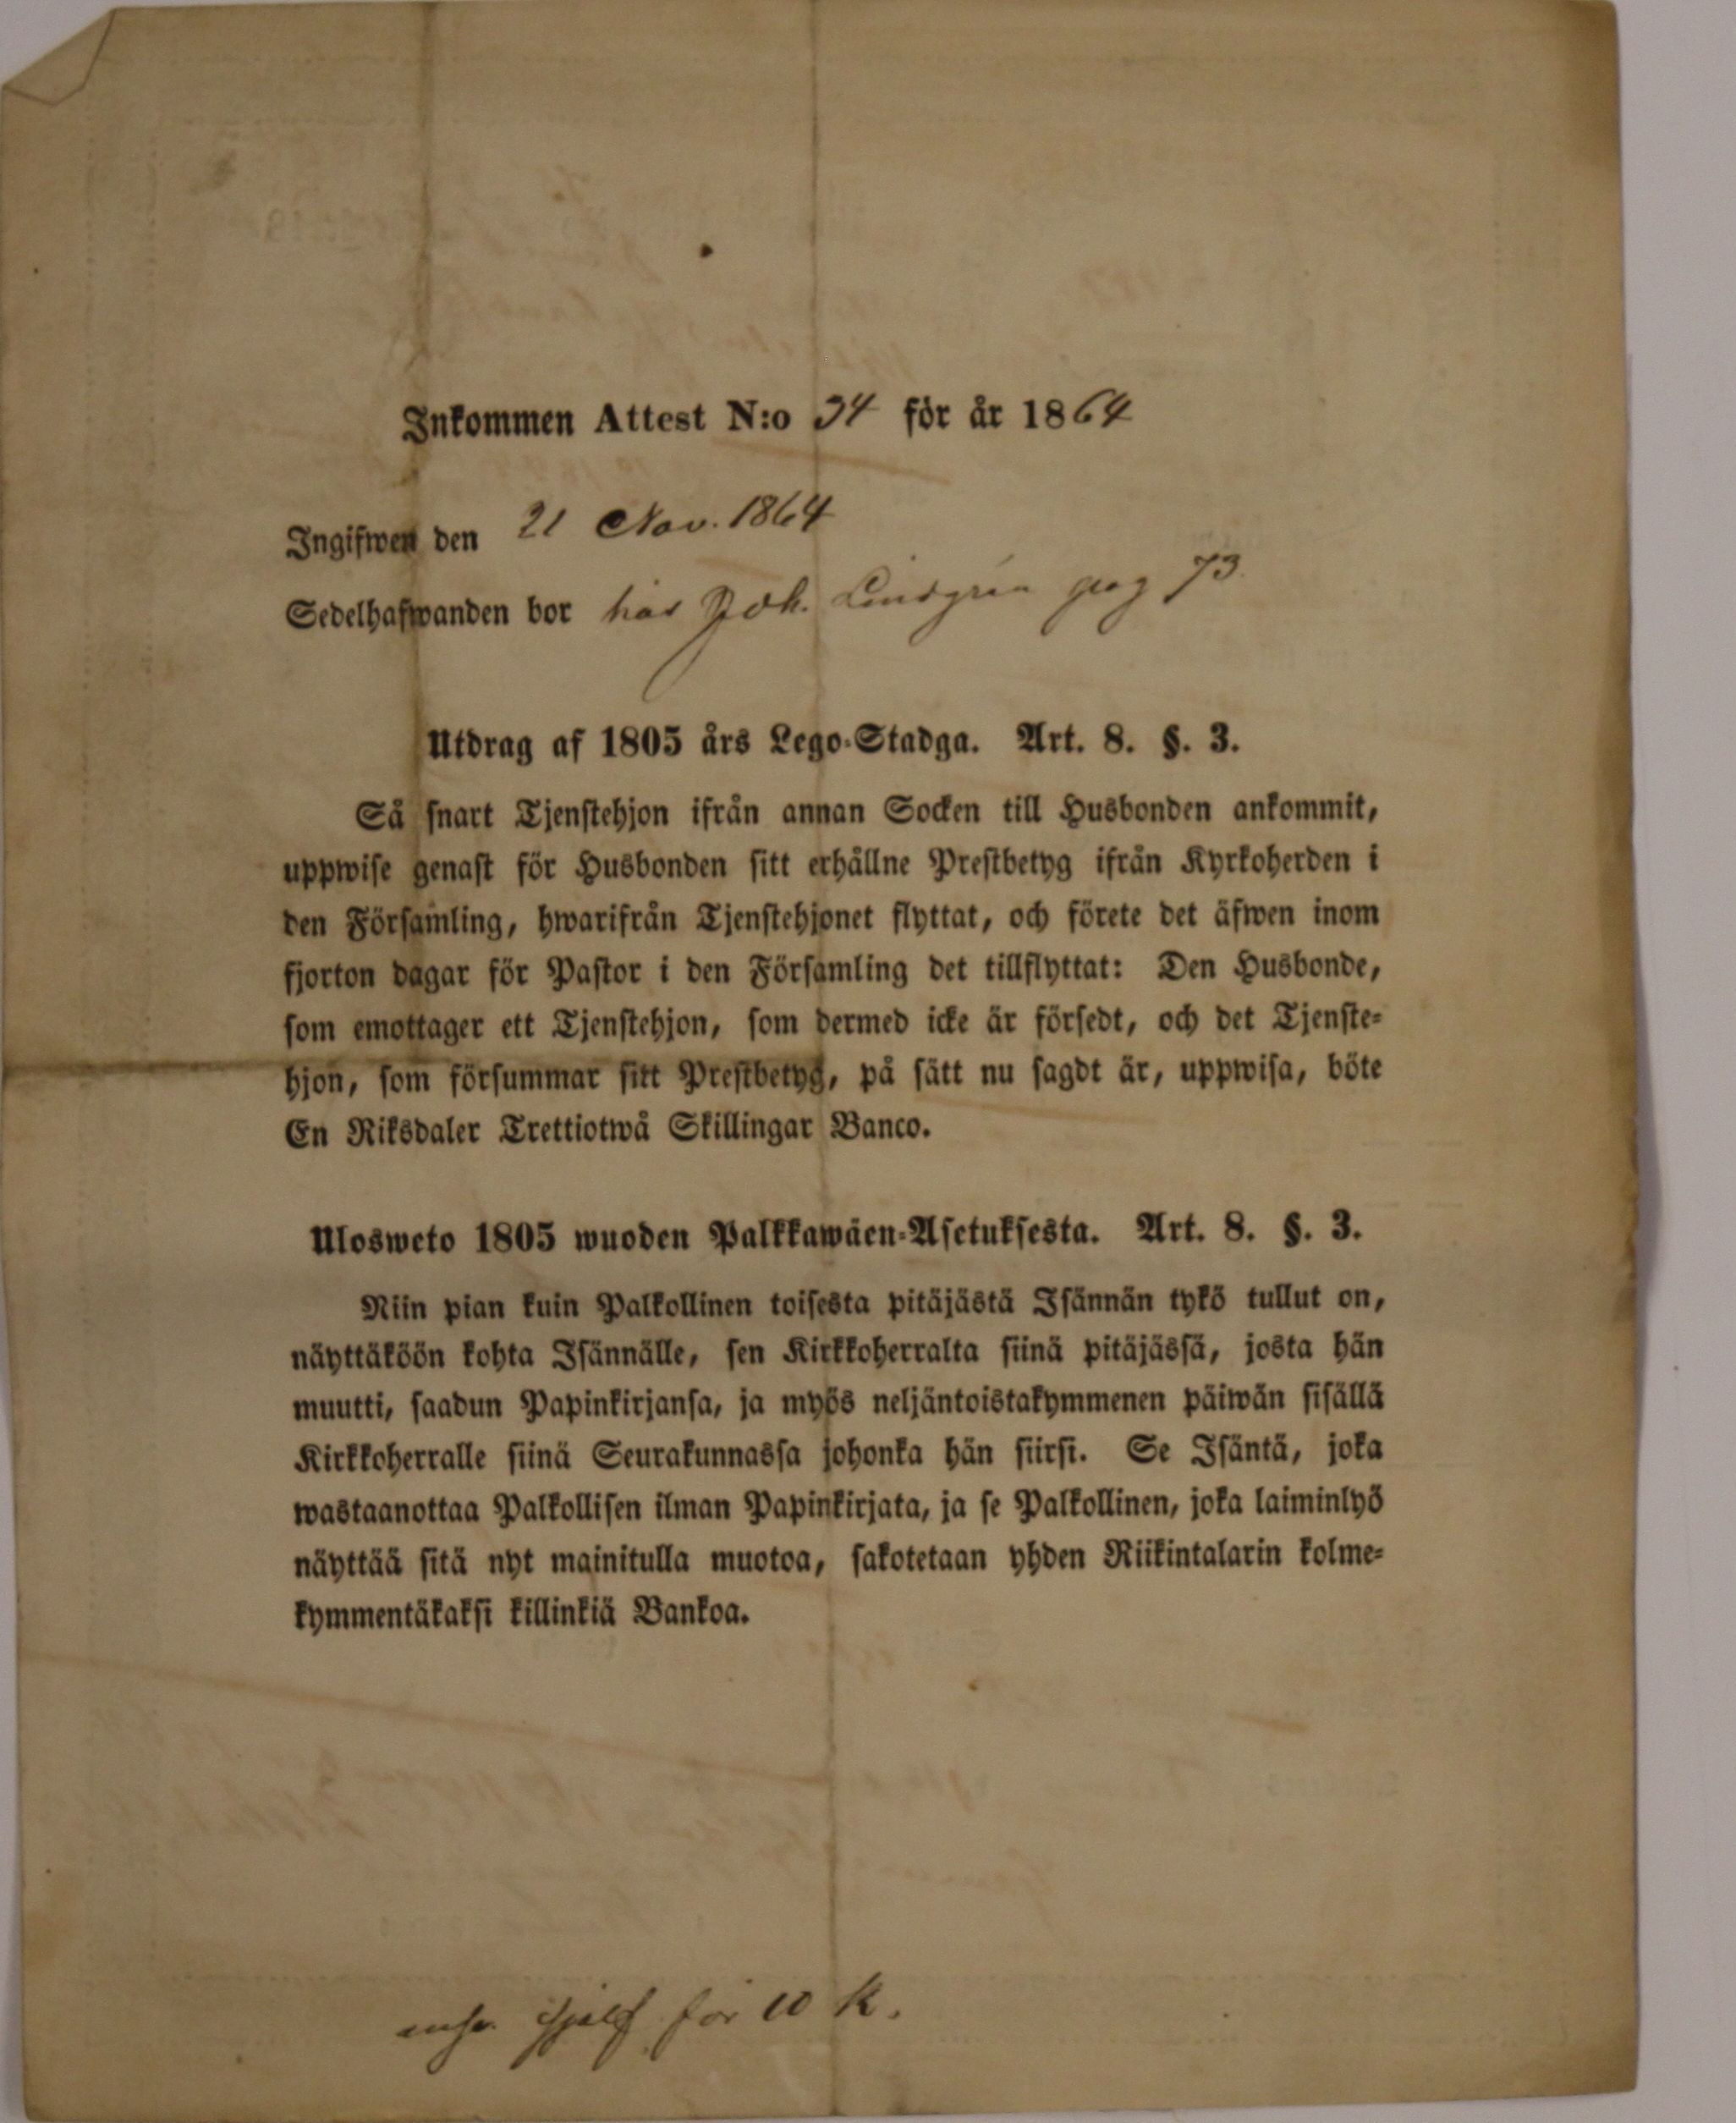 Inkommen Attest N:o 34 för år 1864
Ingifwen den 21 Nov. 1864
Sedelhafwanden bor hos Joh. Lindgrén pag 73
Utdrag af 1805 års Lego-Stadga. Art. 8. §. 3.
Så snart Tjenstehjon ifrån annan Socken till Husbonden ankommit,
uppwise genast för Husbonden sitt erhållne Prestbetyg ifrån Kyrkoherden i
den Församling, hwarifrån Tjenstehjonet flyttat, och förete det äfwen inom
fjorton dagar för Pastor i den Församling det tillflyttat: Den Husbonde,
som emottager ett Tjenstehjon, som dermed icke är försedt, och det Tjenste-
hjon, som försummar sitt Prestbetyg, på sätt nu sagdt är, uppwisa, böte
En Riksdaler Trettiotwå Skillingar Banco.
Ulosweto 1805 wuoden Palkkawäen-Asetuksesta. Art. 8. §. 3.
Niin pian kuin Palkollinen toisesta pitäjästä Isännän tykö tullut on,
näyttäköön kohta Isännälle, sen Kirkkoherralta siinä pitäjässä, josta hän
muutti, saadun Papinkirjansa, ja myös neljäntoistakymmenen päiwän sisällä
Kirkkoherralle siinä Seurakunnassa johonka hän siirsi. Se Isäntä, joka
wastaanottaa Palkollisen ilman Papinkirjata, ja se Palkollinen, joka laiminlyö
näyttää sitä nyt mainitulla muotoa, sakotetaan yhden Riikintalarin kolme-
kymmentäkaksi killinkiä Bankoa.
sjelf för 10 k.